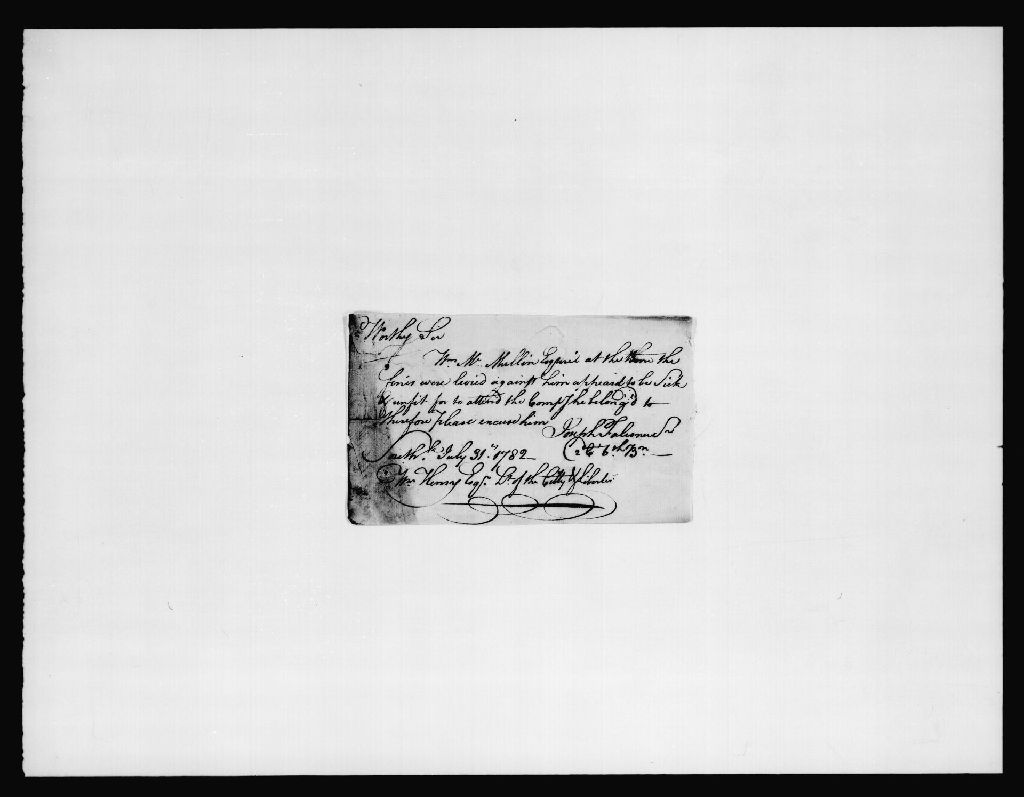 Worthy Sir
Wm. Mc Mullin Esqr at the time the
fines were levied against him appeard to be Sick
& unfit for to attend the Compy he belong'd to
therefore please excuse him
Joseph
Southk. July 31st. 1782
2d C 6th Bn
Wm Henry Esqr. Lt. of the Citty & Liberties